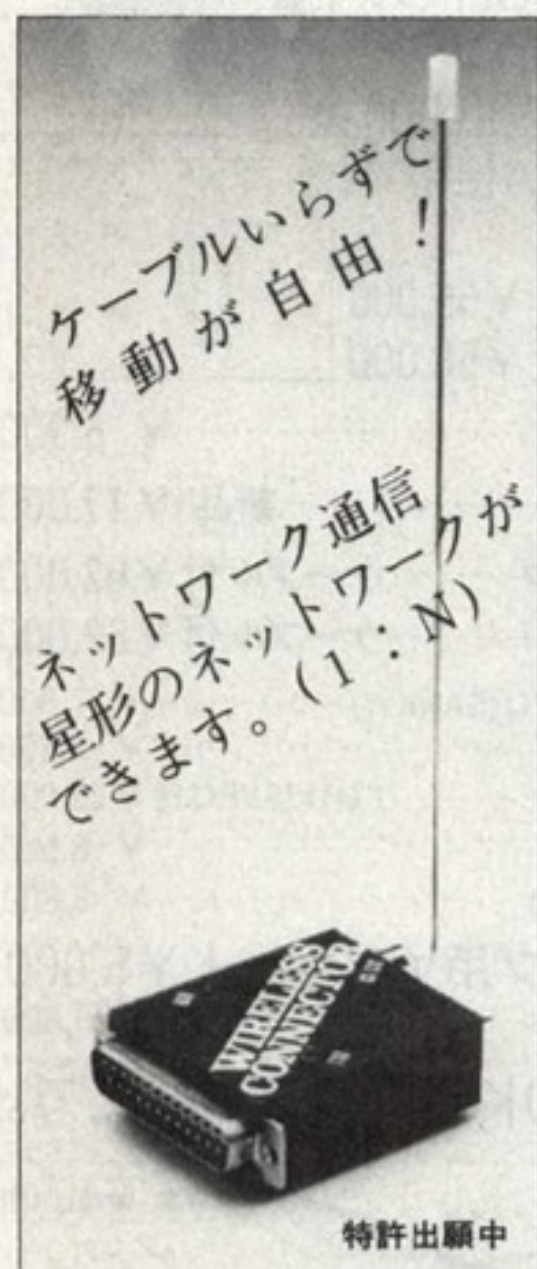 ケーブルいらずで
移動が自由!
ネットワーク通信
星形のネットワークが
できます。(1:N)
WIRELESS
CONNECTOR
特許出願中